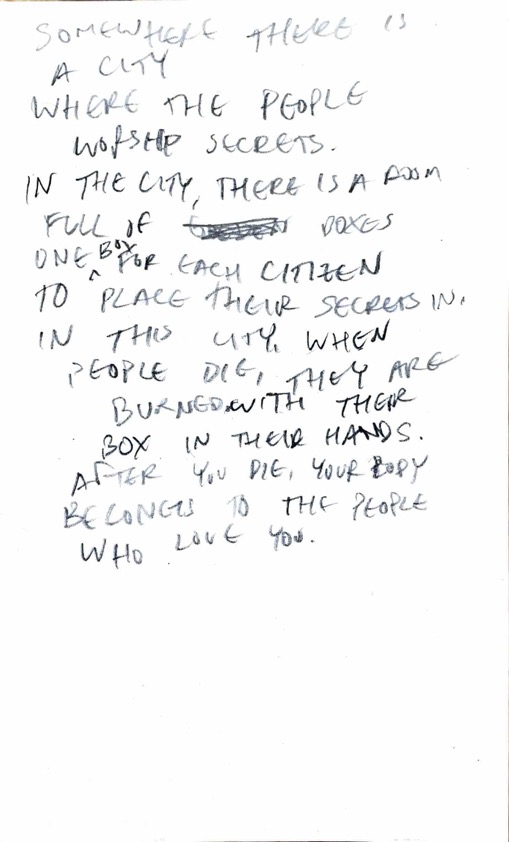 SOMEWHERE THERE IS
A CITY
WHERE THE PEOPLE
WORSHIP SECRETS.
IN THE CITY, THERE IS A ROOM
FULL OF BOXES
ONE BOX FOR EACH CITIZEN
TO PLACE THEIR SECRETS IN.
IN THIS CITY, WHEN
PEOPLE DIE, THEY ARE
BURNED WITH THEIR
BOX IN THEIR HANDS.
AFTER YOU DIE, YOUR BODY
BELONGS TO THE PEOPLE
WHO LOVE YOU.